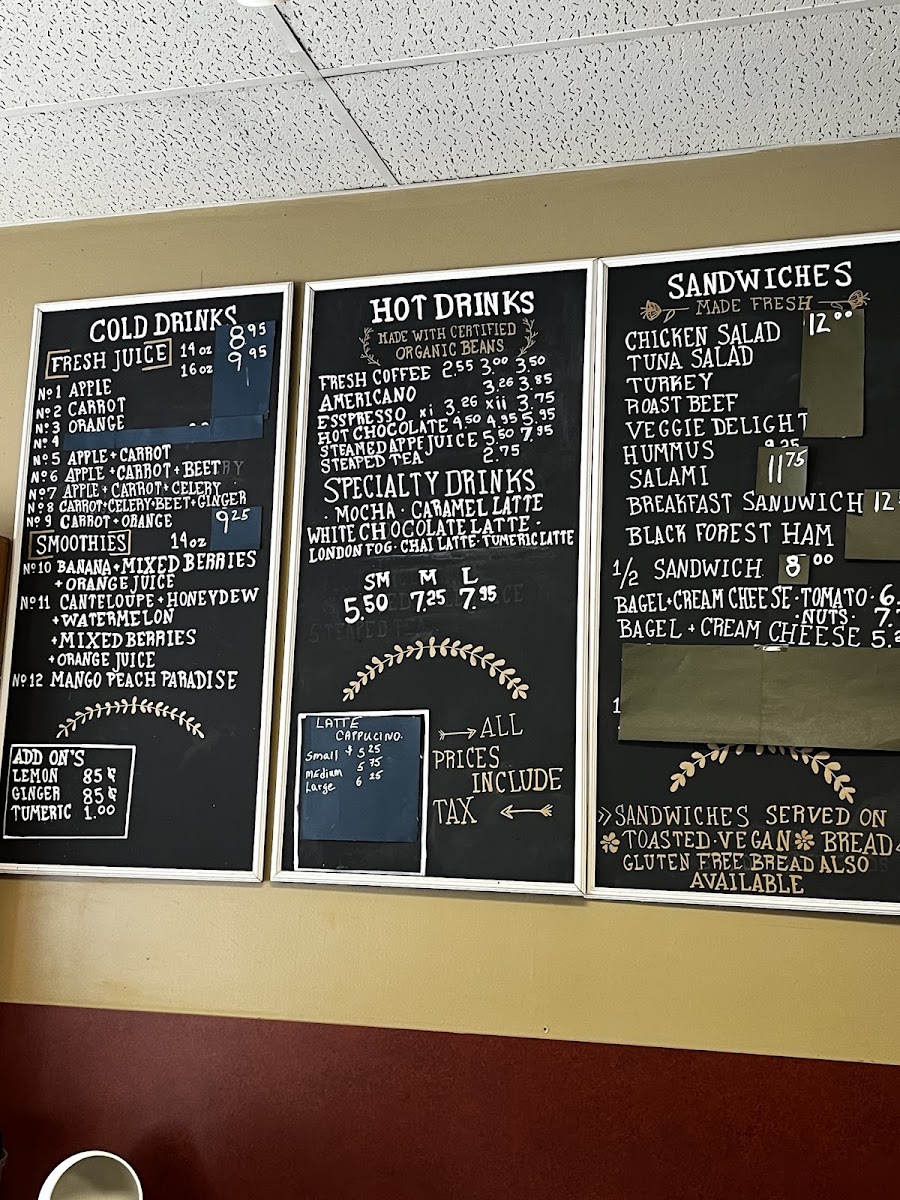 COLD DRINKS
FRESH JUICE 14oz 8.95
16oz 9.95
Nº1 APPLE
Nº2 CARROT
Nº3 ORANGE
Nº4
Nº5 APPLE+CARROT
Nº6 APPLE+CARROT+BEET
Nº7 APPLE+CARROT+CELERY
Nº8 CARROT+CELERY+BEET+GINGER
Nº9 CARROT+ORANGE
SMOOTHIES 14oz 9.25
Nº10 BANANA+MIXED BERRIES
+ORANGE JUICE
Nº11 CANTELOUPE+HONEYDEW
+WATERMELON
+MIXED BERRIES
+ORANGE JUICE
Nº12 MANGO PEACH PARADISE
ADD ON'S
LEMON 85¢
GINGER 85¢
TUMERIC 1.00
HOT DRINKS
MADE WITH CERTIFIED
ORGANIC BEANS
FRESH COFFEE 2.55 3.00 3.50
AMERICANO 3.26 3.85
ESSPRESSO xi 3.26 xii 3.75
HOT CHOCOLATE 4.50 4.95 5.95
STEAMED APPE JUICE 5.50 7.95
STEAPED TEA 2.75
SPECIALTY DRINKS
· MOCHA · CARAMEL LATTE
WHITE CHOCOLATE LATTE ·
LONDON FOG · CHAI LATTE · TUMERIC LATTE
SM M L
5.50 7.25 7.95
LATTE
CAPPUCINO.
Small $ 5 25
medium 5 75
Large 6 25
ALL
PRICES
INCLUDE
TAX
SANDWICHES
MADE FRESH
CHICKEN SALAD 12.00
TUNA SALAD
TURKEY
ROAST BEEF
VEGGIE DELIGHT
HUMMUS
SALAMI 11.75
BREAKFAST SANDWICH 12.
BLACK FOREST HAM
1/2 SANDWICH 8.00
BAGEL+CREAM CHEESE·TOMATO·6.
·NUTS· 7.
BAGEL + CREAM CHEESE 5.
SANDWICHES SERVED ON
TOASTED·VEGAN BREAD
GLUTEN FREE BREAD ALSO
AVAILABLE